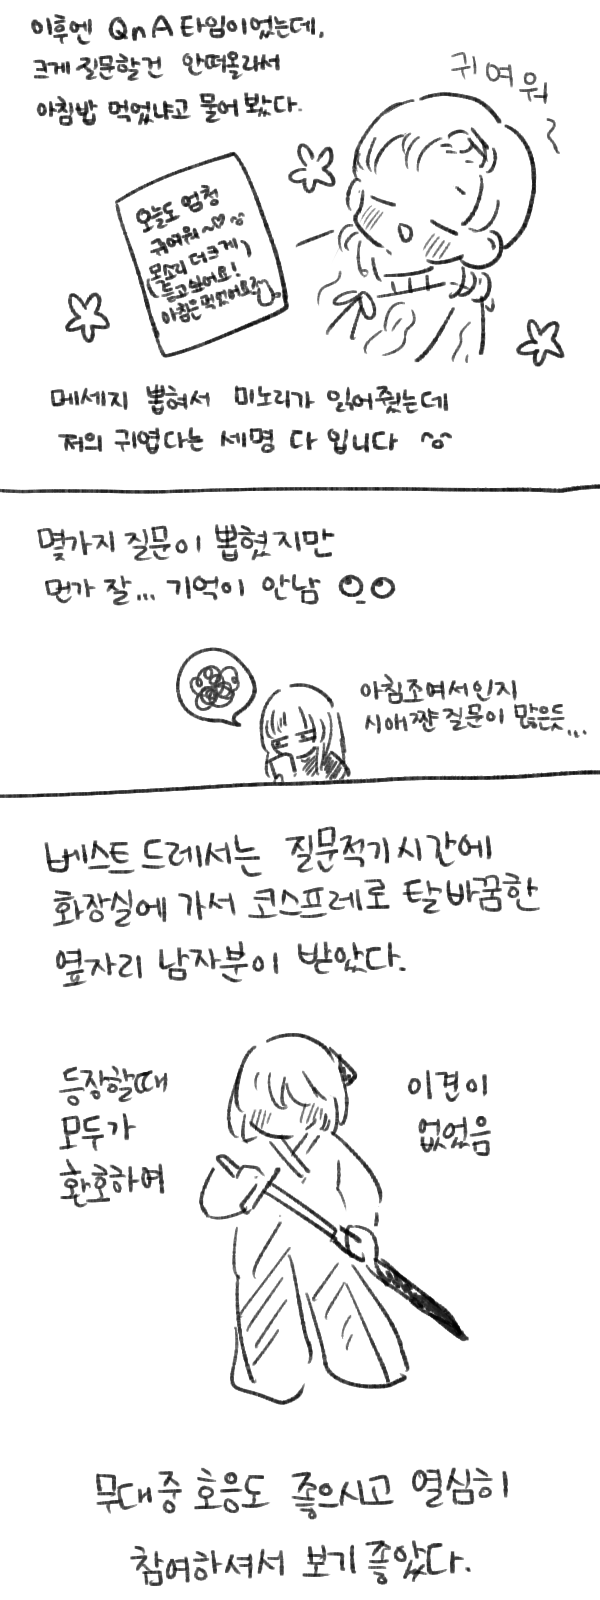 이후엔 QnA 타임이었는데,
크게 질문할건 안떠올라서
아침밥 먹었냐고 물어 봤다.
귀여워
오늘도 엄청
귀여워~♡
목소리 더 크게
듣고싶어요!
아침은 먹었어요?
메세지 뽑혀서 미노리가 읽어줬는데
저의 귀엽다는 세명 다 입니다
몇가지 질문이 뽑혔지만
먼가 잘... 기억이 안남
아침조여서인지
시애쨘 질문이 많은듯...
베스트 드레서는 질문적기시간에
화장실에 가서 코스프레로 탈바꿈한
옆자리 남자분이 받았다.
등장할때
모두가
환호하여
이견이
없었음
무대중 호응도 좋으시고 열심히
참여하셔서 보기좋았다.